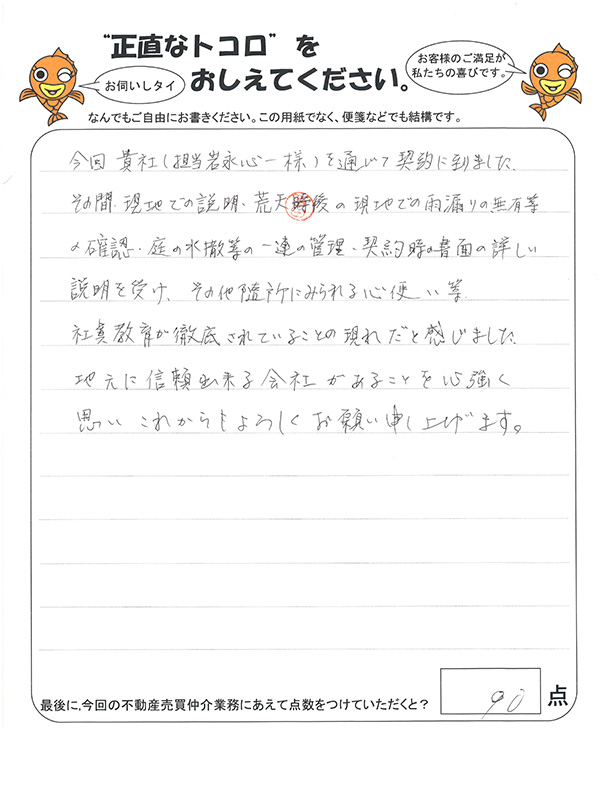 "正直なトコロ"を
おしえてください。
お伺いしタイ
お客様のご満足が
私たちの喜びです。
なんでもご自由にお書きください。この用紙でなく、便箋などでも結構です。
今回 貴社(担当岩永心一様)を通じて契約に到りました.
その間・現地での説明・荒天時後の現地での雨漏りの無有等
の確認・庭の水撒等の一連の管理・契約時の書面の詳しい
説明を受け、その他随所にみられる心使い等.
社員教育が徹底されていることの現れだと感じました.
地元に信頼出来る会社があることを心強く
思い これからもよろしくお願い申し上げます。
最後に、今回の不動産売買仲介業務にあえて点数をつけていただくと?
90 点